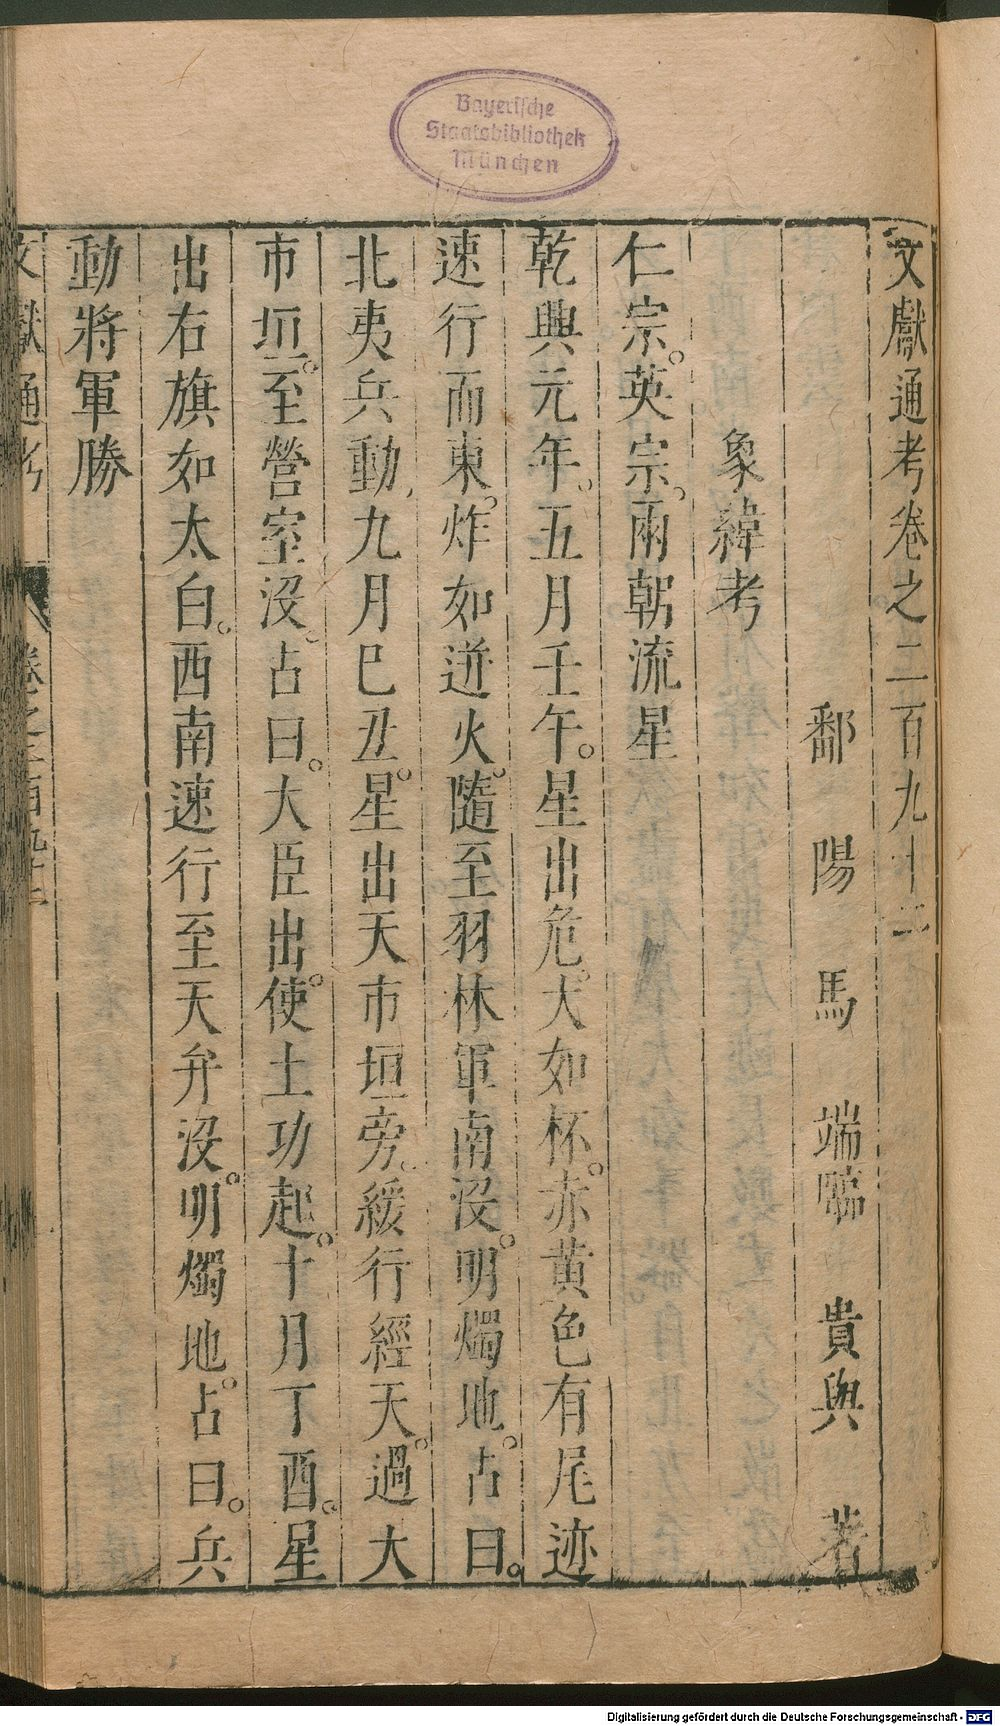 Bayerische
Staatsbibliothek
München
文獻通考卷之二百九十二
鄱陽馬端臨貴與著
象緯考
仁宗。英宗。兩朝流星
乾興元年。五月壬午。星出危。大如杯。赤黃色有尾迹
速行而東。炸如迸火。隨至羽林軍南沒。明燭地。占曰。
北夷兵動。九月巳丑。星出天市垣旁。緩行經天。過大
市垣。至營室沒。占曰。大臣出使。土功起。十月丁酉。星
出右旗如太白。西南速行至天弁沒。明燭地。占曰。兵
動將軍勝
文獻通考
卷之二百九十二
Digitalisierung gefördert durch die Deutsche Forschungsgemeinschaft - DFG